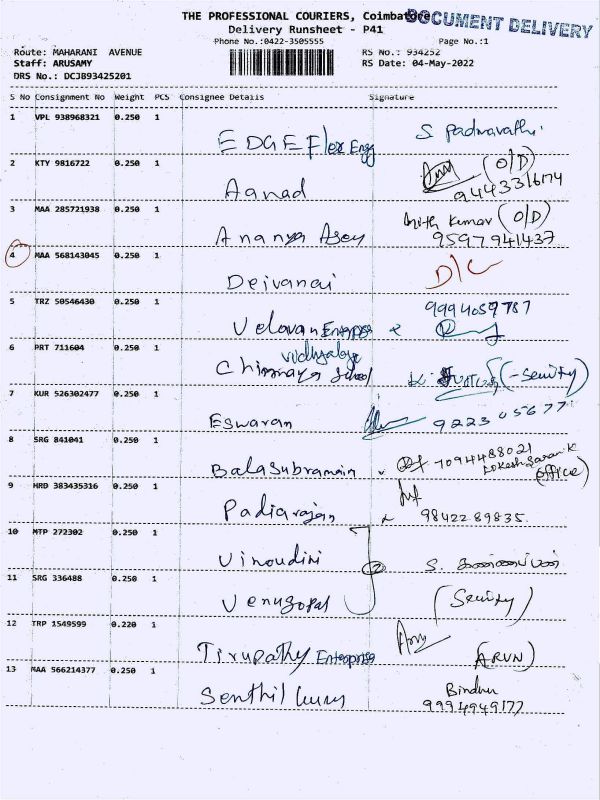 THE PROFESSIONAL COURIERS, Coimbatore
DOCUMENT DELIVERY
Delivery Runsheet - P41
Phone No.:0422-3505555 Page No.:1
Route: MAHARANI AVENUE RS No.: 934252
Staff: ARUSAMY RS Date: 04-May-2022
DRS No.: DCJ893425201
S No Consignment No Weight PCS Consignee Details Signature
1 VPL 938968321 0.250 1 EDGE Flex Engg S Padmavathi
2 KTY 9816722 0.250 1 Aanad (O/D)
9443316174
3 MAA 285721938 0.250 1 Ananya Kumar (O/D)
9597941437
4 MAA 568143045 0.250 1 Deivanai D/C
5 TRZ 50546430 0.250 1 Velavan Enterprise 9994059787
6 PRT 711604 0.250 1 Chinmaya vidhyalaya School
7 KUR 526302477 0.250 1 Eswaran 9223 05677
8 SRG 841041 0.250 1 Balasubramain 7094488021
(office)
9 MRD 383435316 0.250 1 Padiarajan 98422 89835
10 MTP 272302 0.250 1 Vinoudini
11 SRG 336488 0.250 1 Venugopal
12 TRP 1549599 0.220 1 Tirupathy Enterprise (ARUN)
13 MAA 566214377 0.250 1 Senthil Bindhu
9994949177